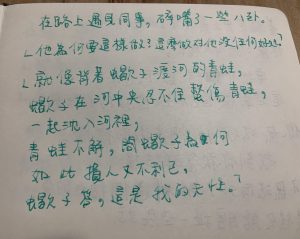 在路上遇見同事，碎嘴了一些八卦。
「他為何要這樣做？這麼做對他沒任何好處？
「就像背著蠍子渡河的青蛙，
蠍子在河中央忍不住螫傷青蛙，
一起沈入河裡，
青蛙不解，問蠍子為何
如此損人又不利己，
蠍子答，這是我的天性。」